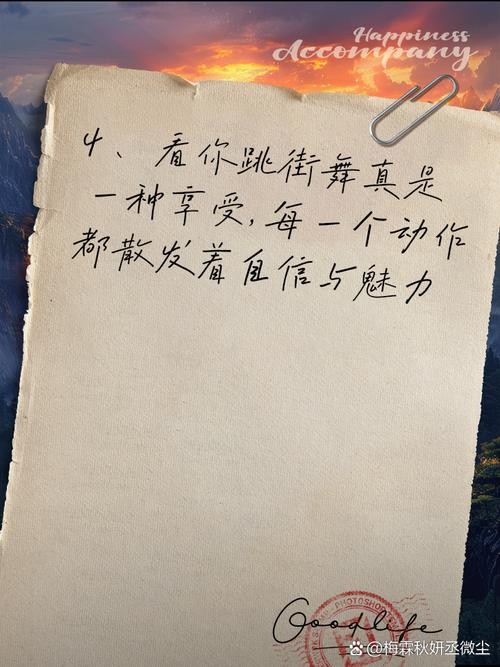 Happiness
Accompany
4、看你跳街舞真是
一种享受,每一个动作
都散发着自信与魅力
PHOTOSHOP
Goodlife
@梅霖秋妍丞微尘